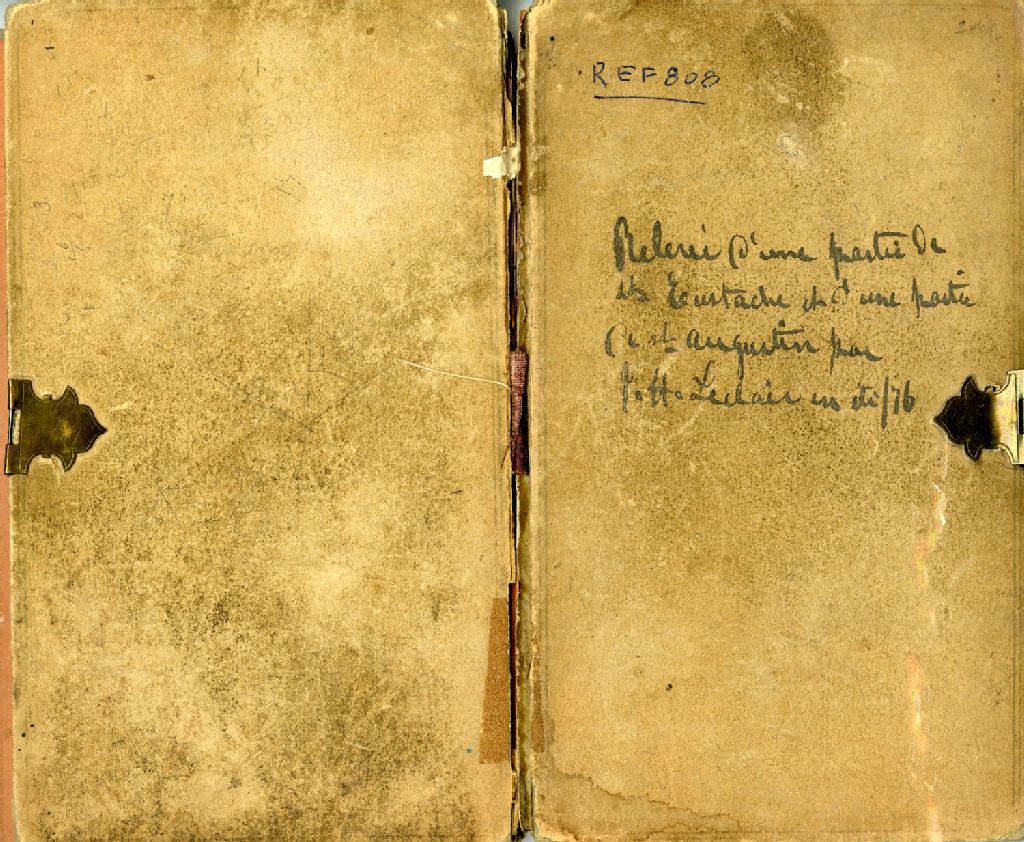 REF 808
Relevé d'une partie de
st Eustache et d'une partie
de st augustin par
J. H. Leclair en été/76